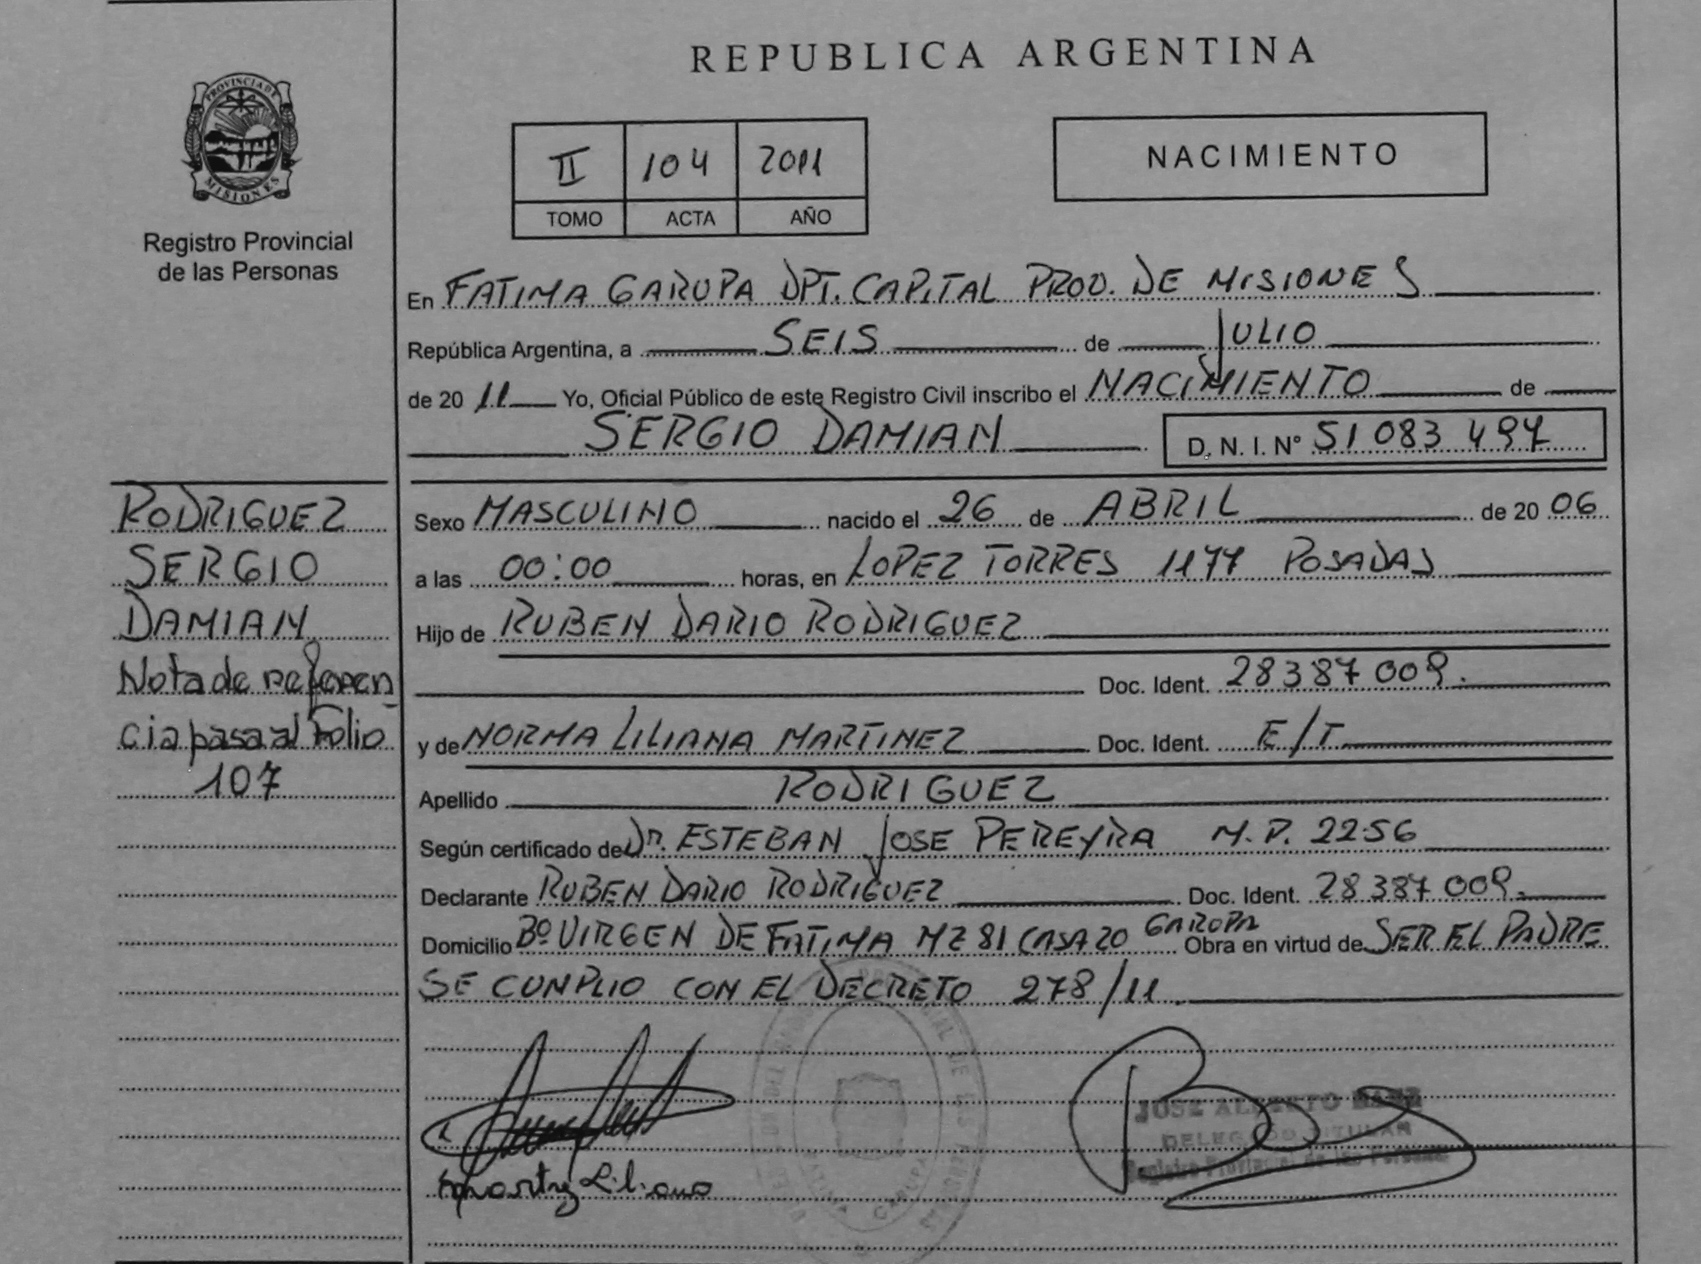 REPUBLICA ARGENTINA
PROVINCIA DE
MISIONES
Registro Provincial
de las Personas
II 104 2011
TOMO ACTA AÑO
NACIMIENTO
En FATIMA GARUPA DPT. CAPITAL PROV. DE MISIONES
República Argentina, a SEIS de JULIO
de 20 11 Yo, Oficial Público de este Registro Civil inscribo el NACIMIENTO de
SERGIO DAMIAN D. N. I. Nº 51 083 497
RODRIGUEZ
SERGIO
DAMIAN
Nota de referen
cia pasa al Folio
107
Sexo MASCULINO nacido el 26 de ABRIL de 20 06
a las 00:00 horas, en LOPEZ TORRES 1177 POSADAS
Hijo de RUBEN DARIO RODRIGUEZ
Doc. Ident. 28387 009.
y de NORMA LILIANA MARTINEZ Doc. Ident. E/T
Apellido RODRIGUEZ
Según certificado de Dr. ESTEBAN JOSE PEREYRA M.P. 2256
Declarante RUBEN DARIO RODRIGUEZ Doc. Ident. 28 387 009.
Domicilio Bº VIRGEN DE FATIMA MZ 81 CASA 20 GARUPA Obra en virtud de SER EL PADRE
SE CUMPLIO CON EL DECRETO 278/11.
JOSE ALBERTO
DELEGADO TITULAR
Registro Provincial de las Personas